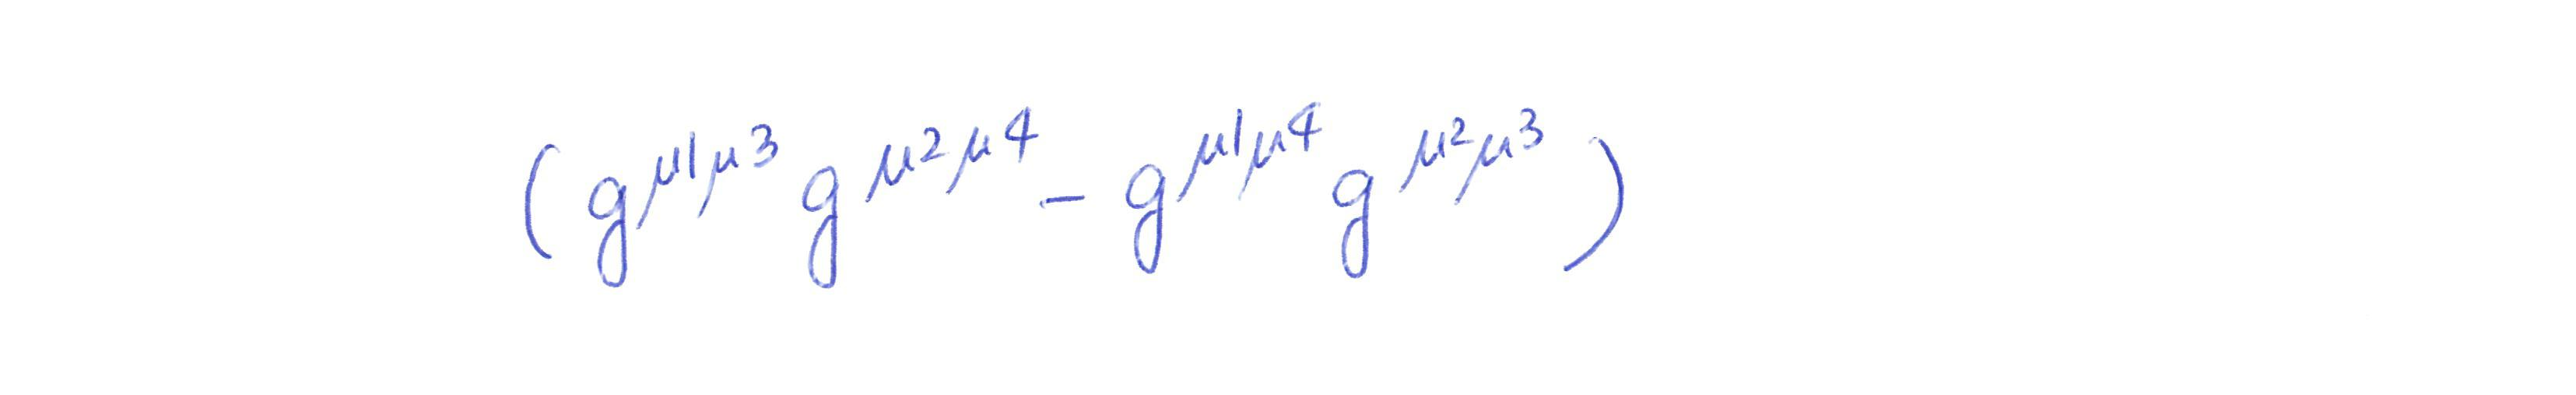 (g^{μ1μ3} g^{μ2μ4} - g^{μ1μ4} g^{μ2μ3})